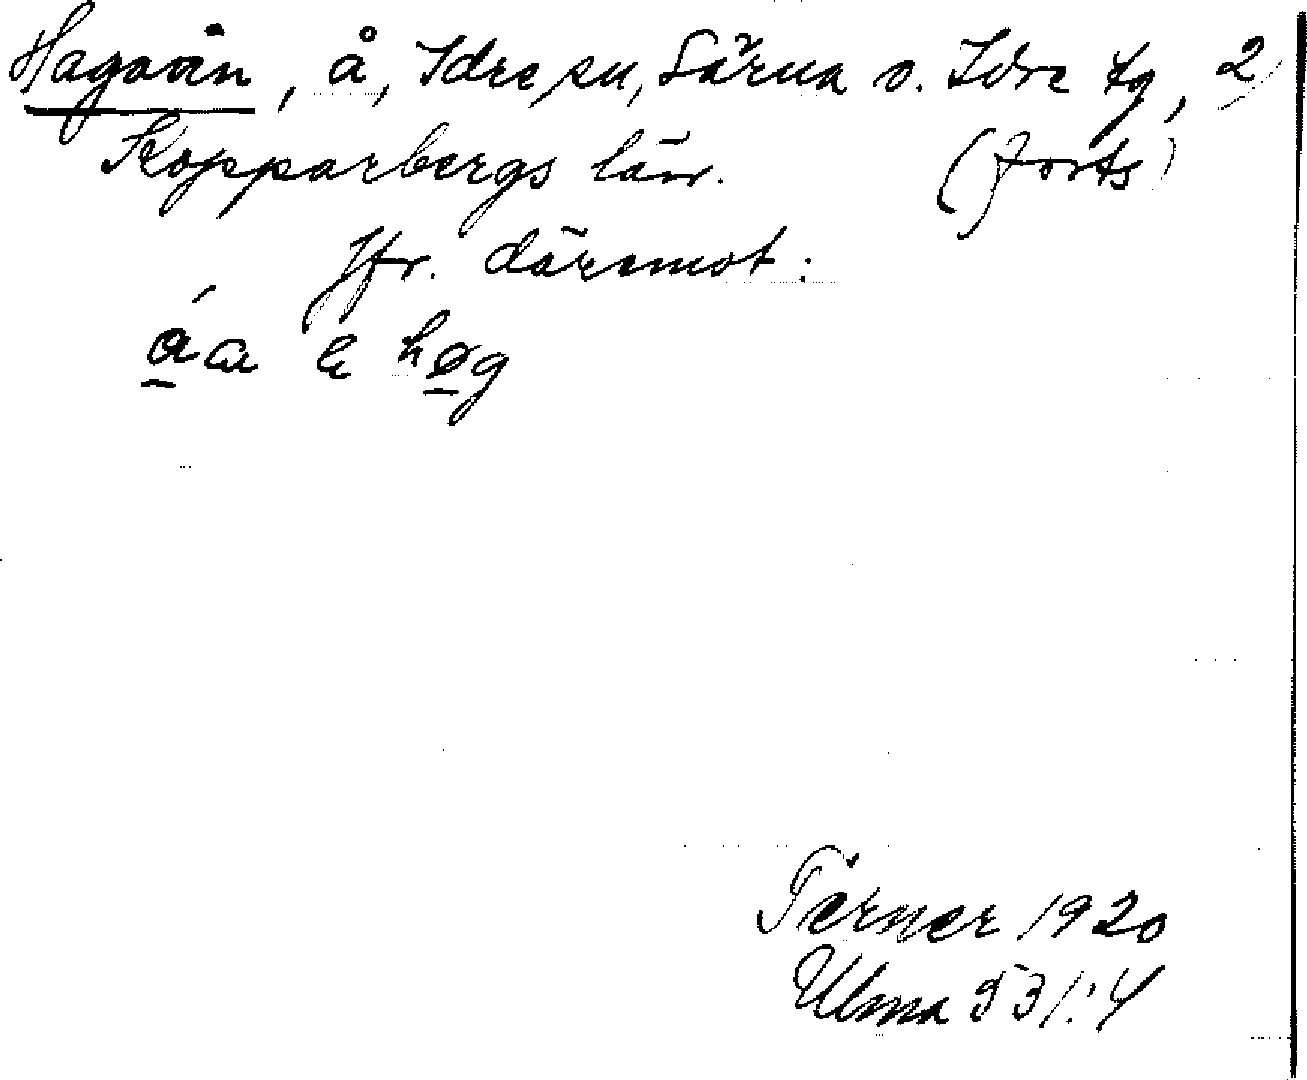 Hagaån, å, Idre sn, Särna o. Idre tg, 2
Kopparbergs län. (forts)
Jfr. däremot:
Törner 1920
Ulma 531:4